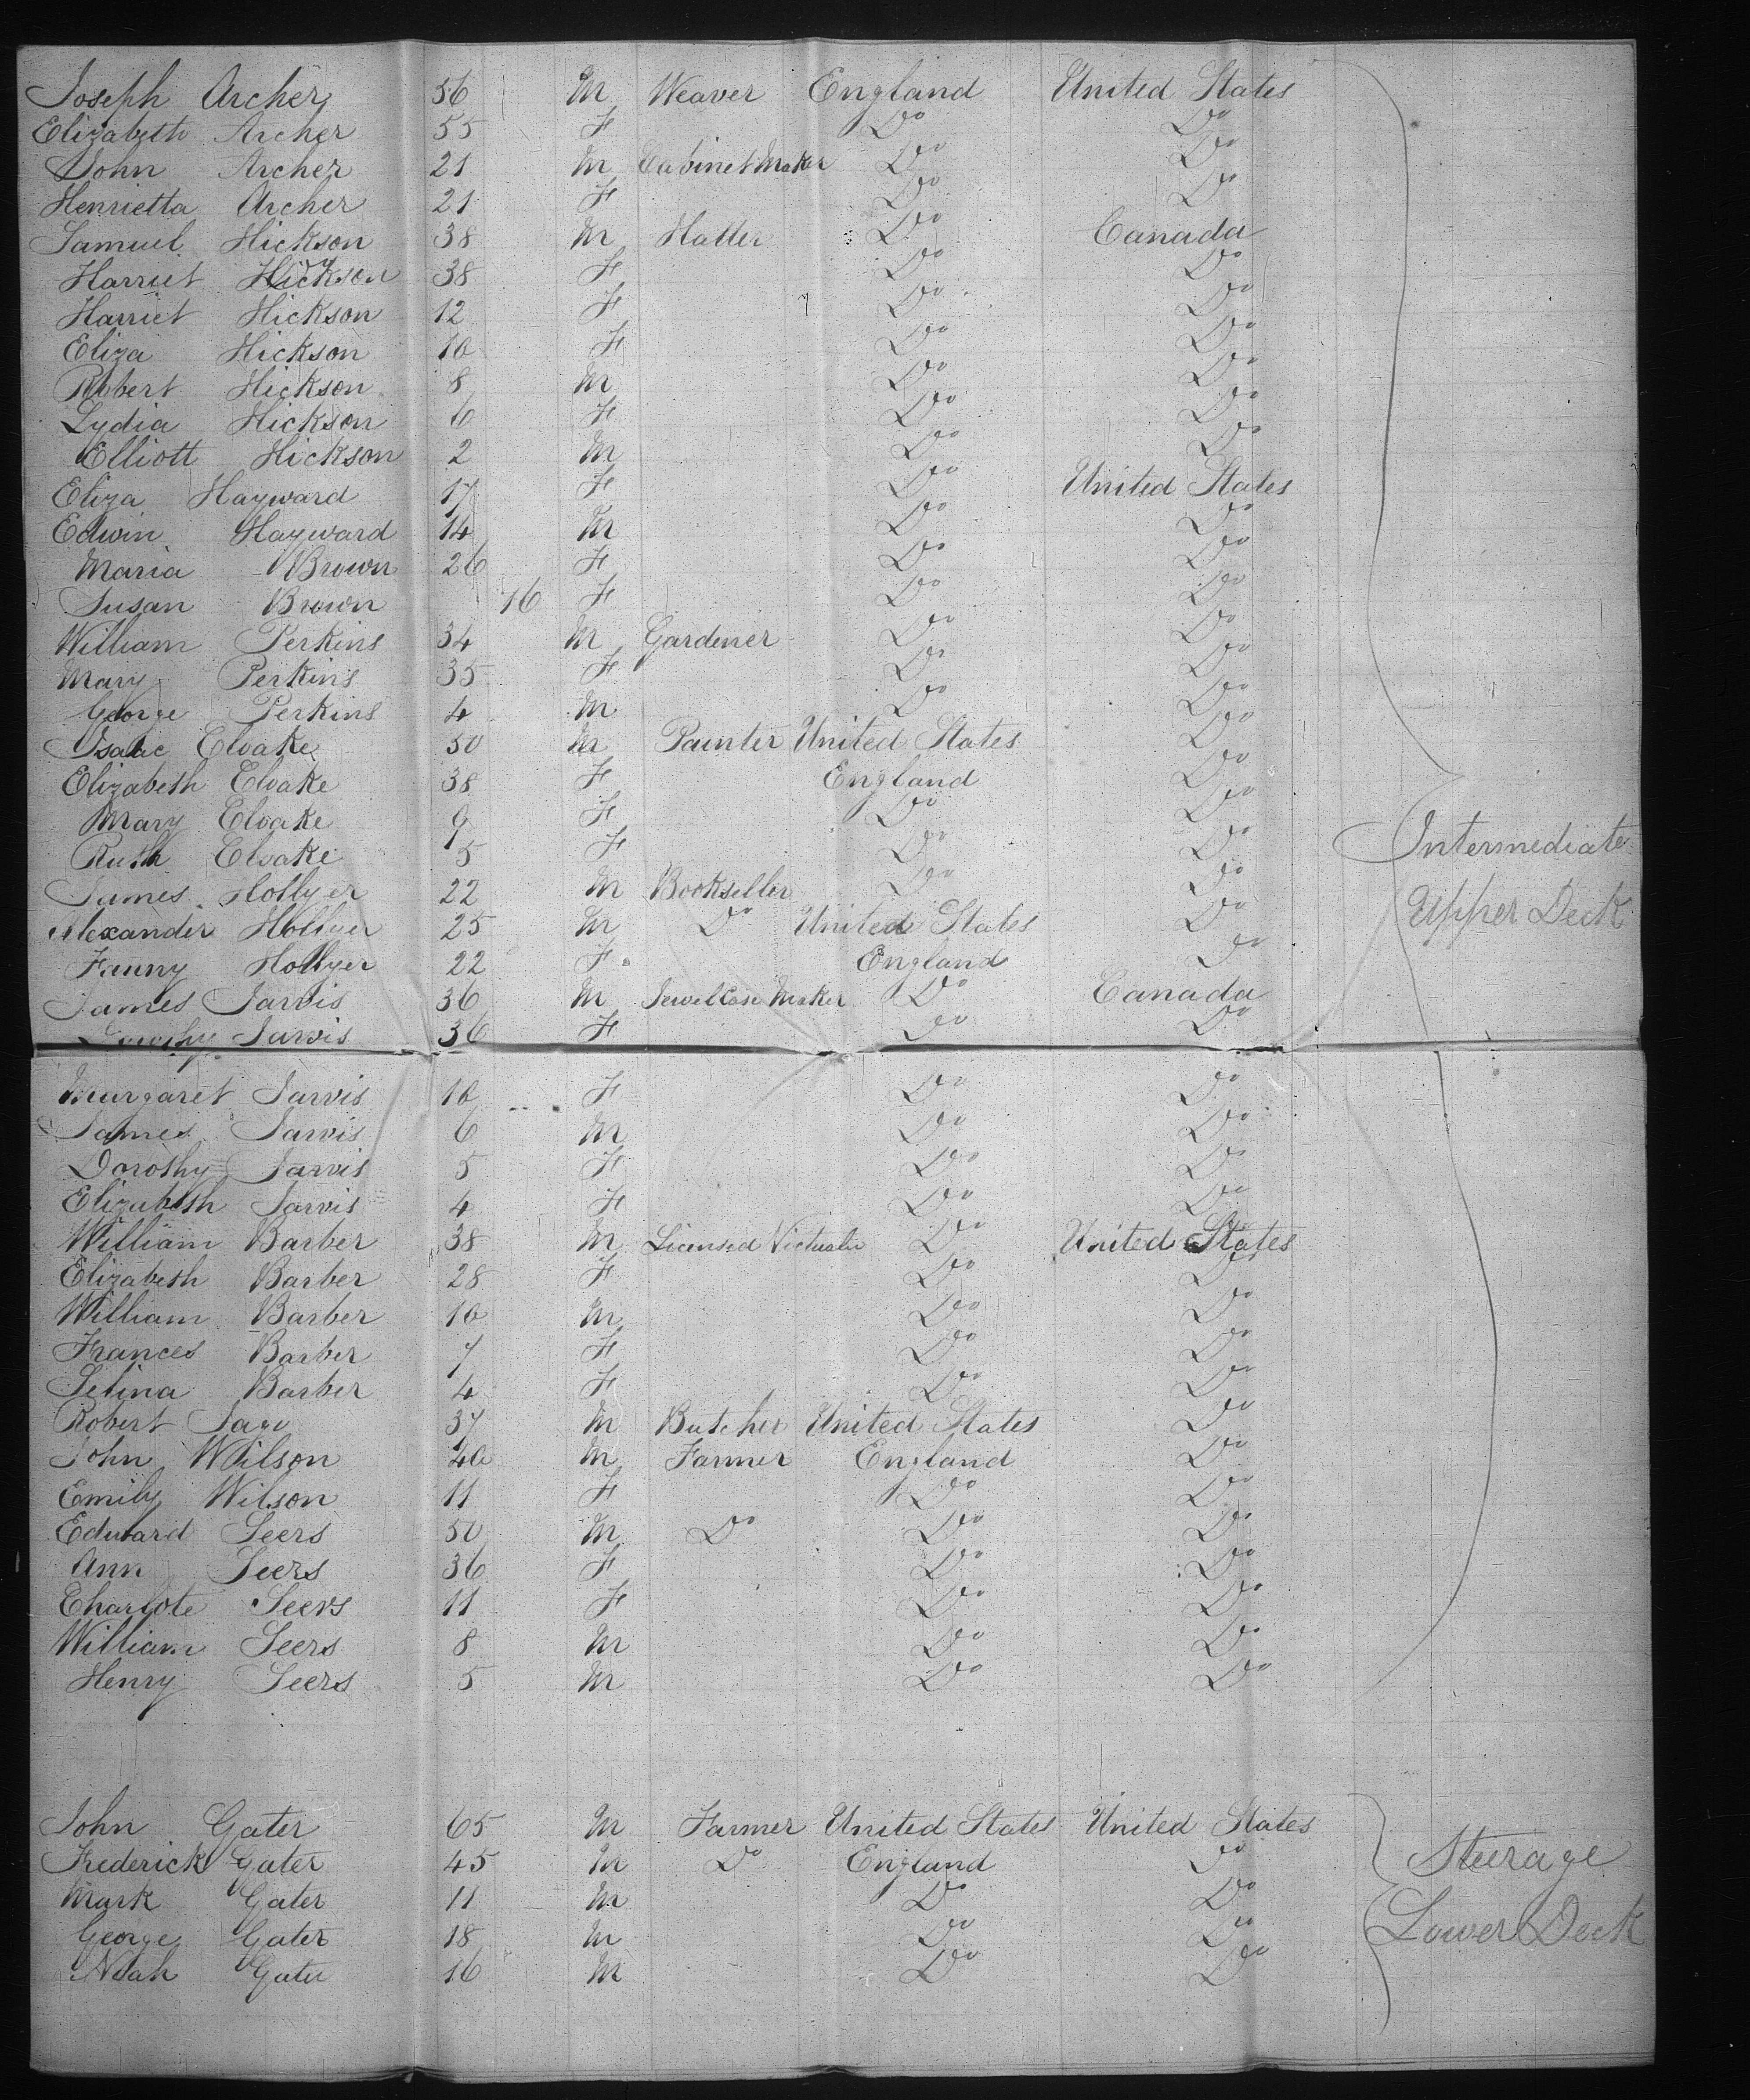 Joseph Archer 56 M Weaver England United States
Elizabeth Archer 55 F Do Do
John Archer 21 M Cabinet Maker Do Do
Henrietta Archer 21 F Do Do
Samuel Hickson 38 M Hatter Do Canada
Harriet Hickson 38 F Do Do
Harriet Hickson 12 F Do Do
Eliza Hickson 10 F Do Do
Robert Hickson 8 M Do Do
Lydia Hickson 6 F Do Do
Elliott Hickson 2 M Do Do
Eliza Hayward 17 F Do United States
Edwin Hayward 14 M Do Do
Maria Brown 26 F Do Do
Susan Brown 16 F Do Do
William Perkins 34 M Gardener Do Do
Mary Perkins 35 F Do Do
George Perkins 4 M Do Do
Isaac Cloake 50 M Painter United States Do
Elizabeth Cloake 38 F England Do
Mary Cloake 9 F Do Do
Ruth Cloake 5 F Do Do
Intermediate
James Hollyer 22 M Bookseller Do Do
Upper Deck
Alexander Hollyer 25 M Do United States Do
Fanny Hollyer 22 F England Do
James Jarvis 36 M Jewel Case Maker Do Canada
Jarvis 36 F Do Do
Margaret Jarvis 10 F Do Do
James Jarvis 6 M Do Do
Dorothy Jarvis 5 F Do Do
Elizabeth Jarvis 4 F Do Do
William Barber 38 M Licensed Victualer Do United States
Elizabeth Barber 28 F Do Do
William Barber 10 M Do Do
Frances Barber 7 F Do Do
Selina Barber 4 F Do Do
Robert 37 M Butcher United States Do
John Wilson 40 M Farmer England Do
Emily Wilson 11 F Do Do
Edward Seers 50 M Do Do Do
Ann Seers 36 F Do Do
Charlote Seers 11 F Do Do
William Seers 8 M Do Do
Henry Seers 5 M Do Do
John Gater 65 M Farmer United States United States
Frederick Gater 45 M Do England Do
Steerage
Mark Gater 11 M Do Do
Lower Deck
George Gater 18 M Do Do
Noah Gater 16 M Do Do